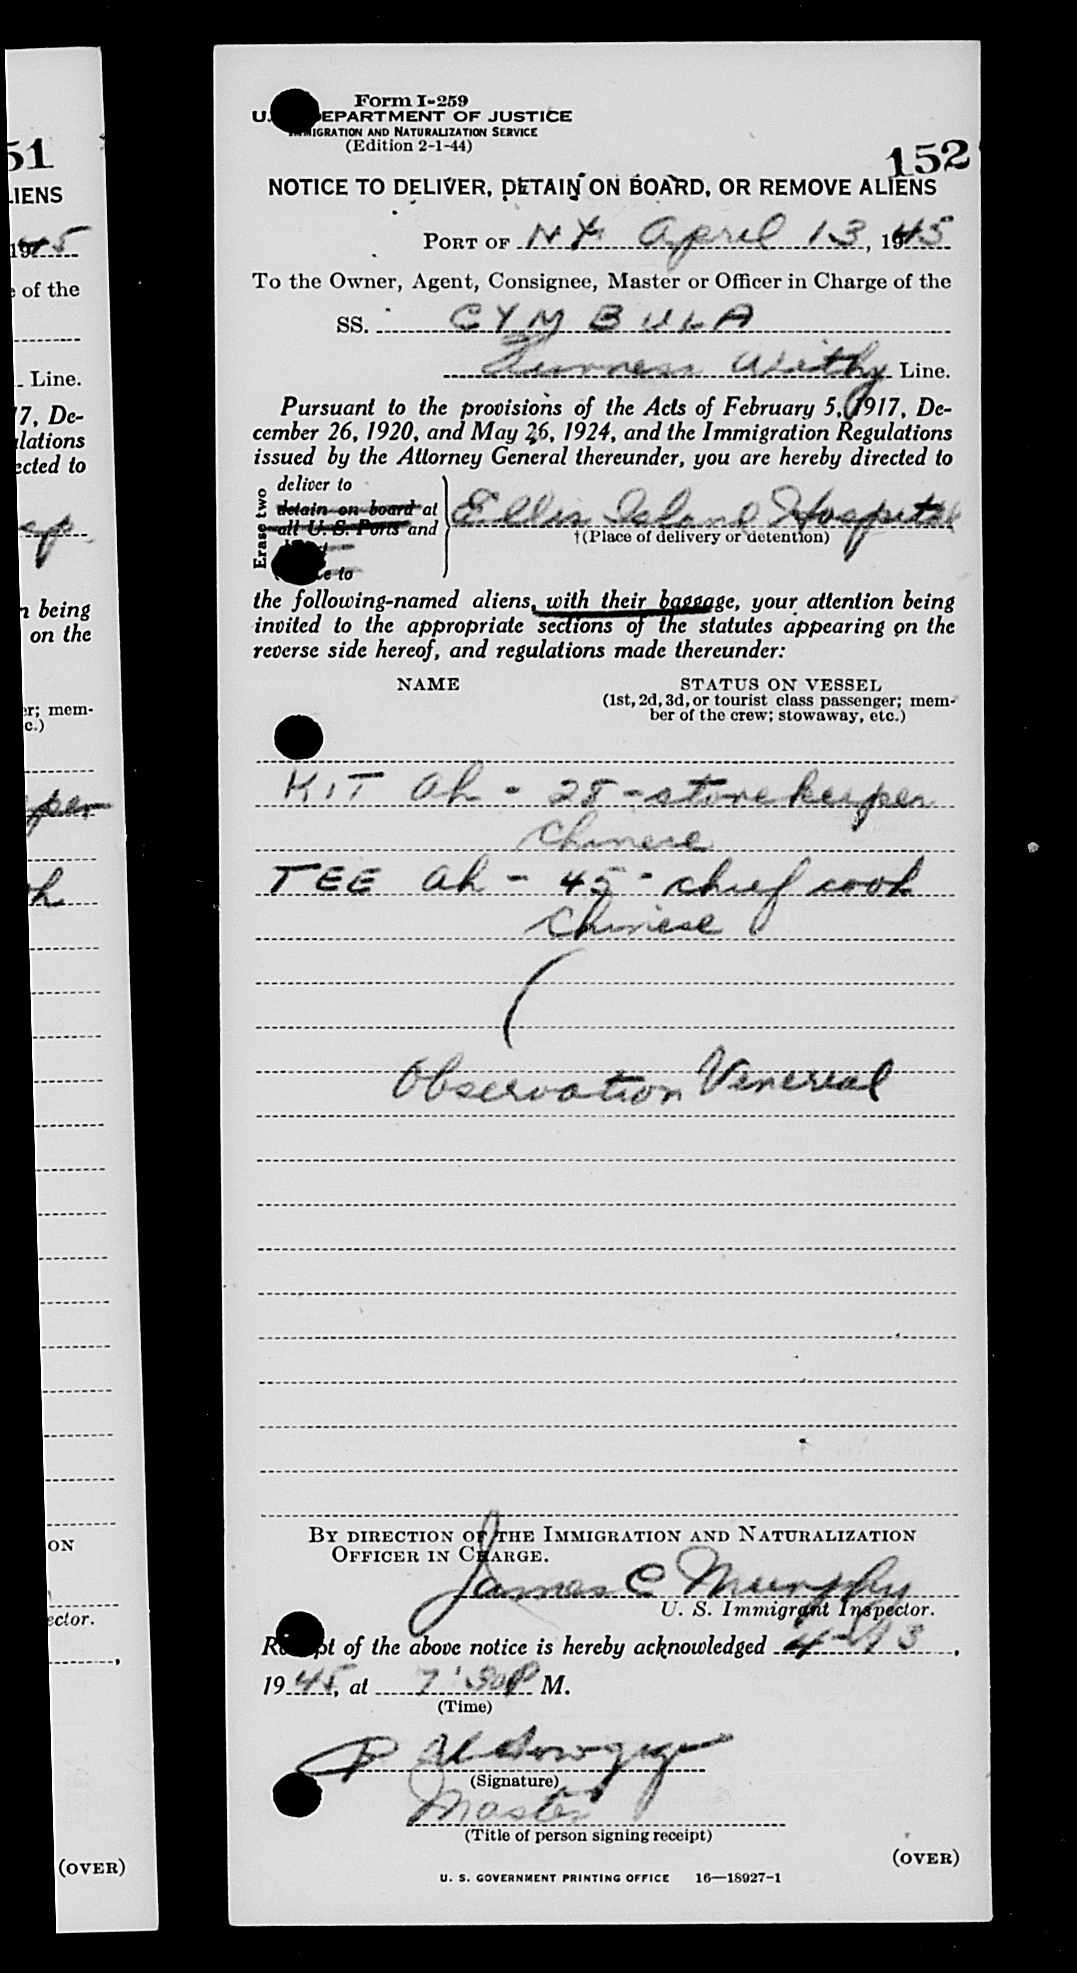 51
LIENS
1945
of the
Line.
17, De-
lations
ected to
n being
on the
er; mem-
c.)
ON
ector.
(OVER)
Form I-259
U. DEPARTMENT OF JUSTICE
IMMIGRATION AND NATURALIZATION SERVICE
(Edition 2-1-44)
152
NOTICE TO DELIVER, DETAIN ON BOARD, OR REMOVE ALIENS
PORT OF NY April 13, 1945
To the Owner, Agent, Consignee, Master or Officer in Charge of the
SS. CYMBULA
Furness Withy Line.
Pursuant to the provisions of the Acts of February 5, 1917, De-
cember 26, 1920, and May 26, 1924, and the Immigration Regulations
issued by the Attorney General thereunder, you are hereby directed to
Erase two
deliver to
detain on board at
all U. S. Ports and
e to
Ellis Island Hospital
†(Place of delivery or detention)
the following-named aliens, with their baggage, your attention being
invited to the appropriate sections of the statutes appearing on the
reverse side hereof, and regulations made thereunder:
NAME STATUS ON VESSEL
(1st, 2d, 3d, or tourist class passenger; mem-
ber of the crew; stowaway, etc.)
KIT Ah - 28 - storekeeper
Chinese
TEE Ah - 45 - chief cook
Chinese
(
Observation Venereal
BY DIRECTION OF THE IMMIGRATION AND NATURALIZATION
OFFICER IN CHARGE.
James C Murphy
U. S. Immigrant Inspector.
Receipt of the above notice is hereby acknowledged 4-13,
1945, at 7:30 P M.
(Time)
(Signature)
Master
(Title of person signing receipt)
(OVER)
U. S. GOVERNMENT PRINTING OFFICE 16—18927-1